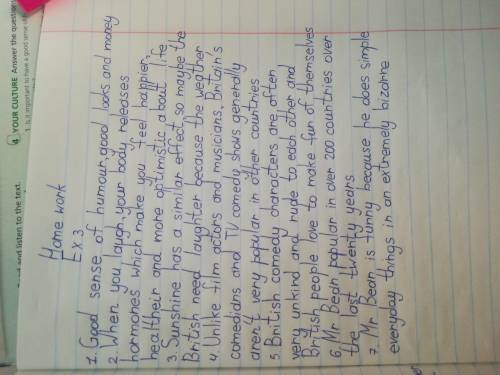 4 YOUR CULTURE Answer the questions
1 Is it important to have a good sense of
and listen to the text.
Home work
Ex 3
1. Good sense of humour, good looks and money
2. When you laugh, your body releases
hormones which make you feel happier,
healtheir and more optimistic about life
3. Sunshine has a similar effect, so maybe the
British need laughter because the weather
4. Unlike film actors and musicians, Britain's
comedians and TV comedy shows generally
aren't very popular in other countries
5. British comedy characters are often
very unkind and rude to each other and
British people love to make fun of themselves
6. Mr Bean popular in over 200 countries over
the last twenty years
7. Mr Bean is funny because he does simple
everyday things in an extremely bizarre